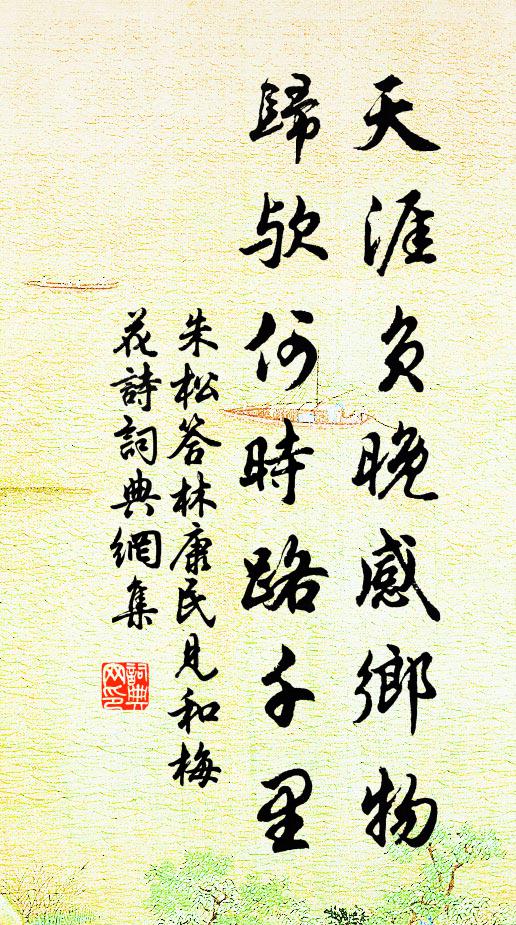 天涯岁晚感鄉物
歸欤何時路千里
朱松答林康民見和梅
花詩詞典網集
詞典
网印